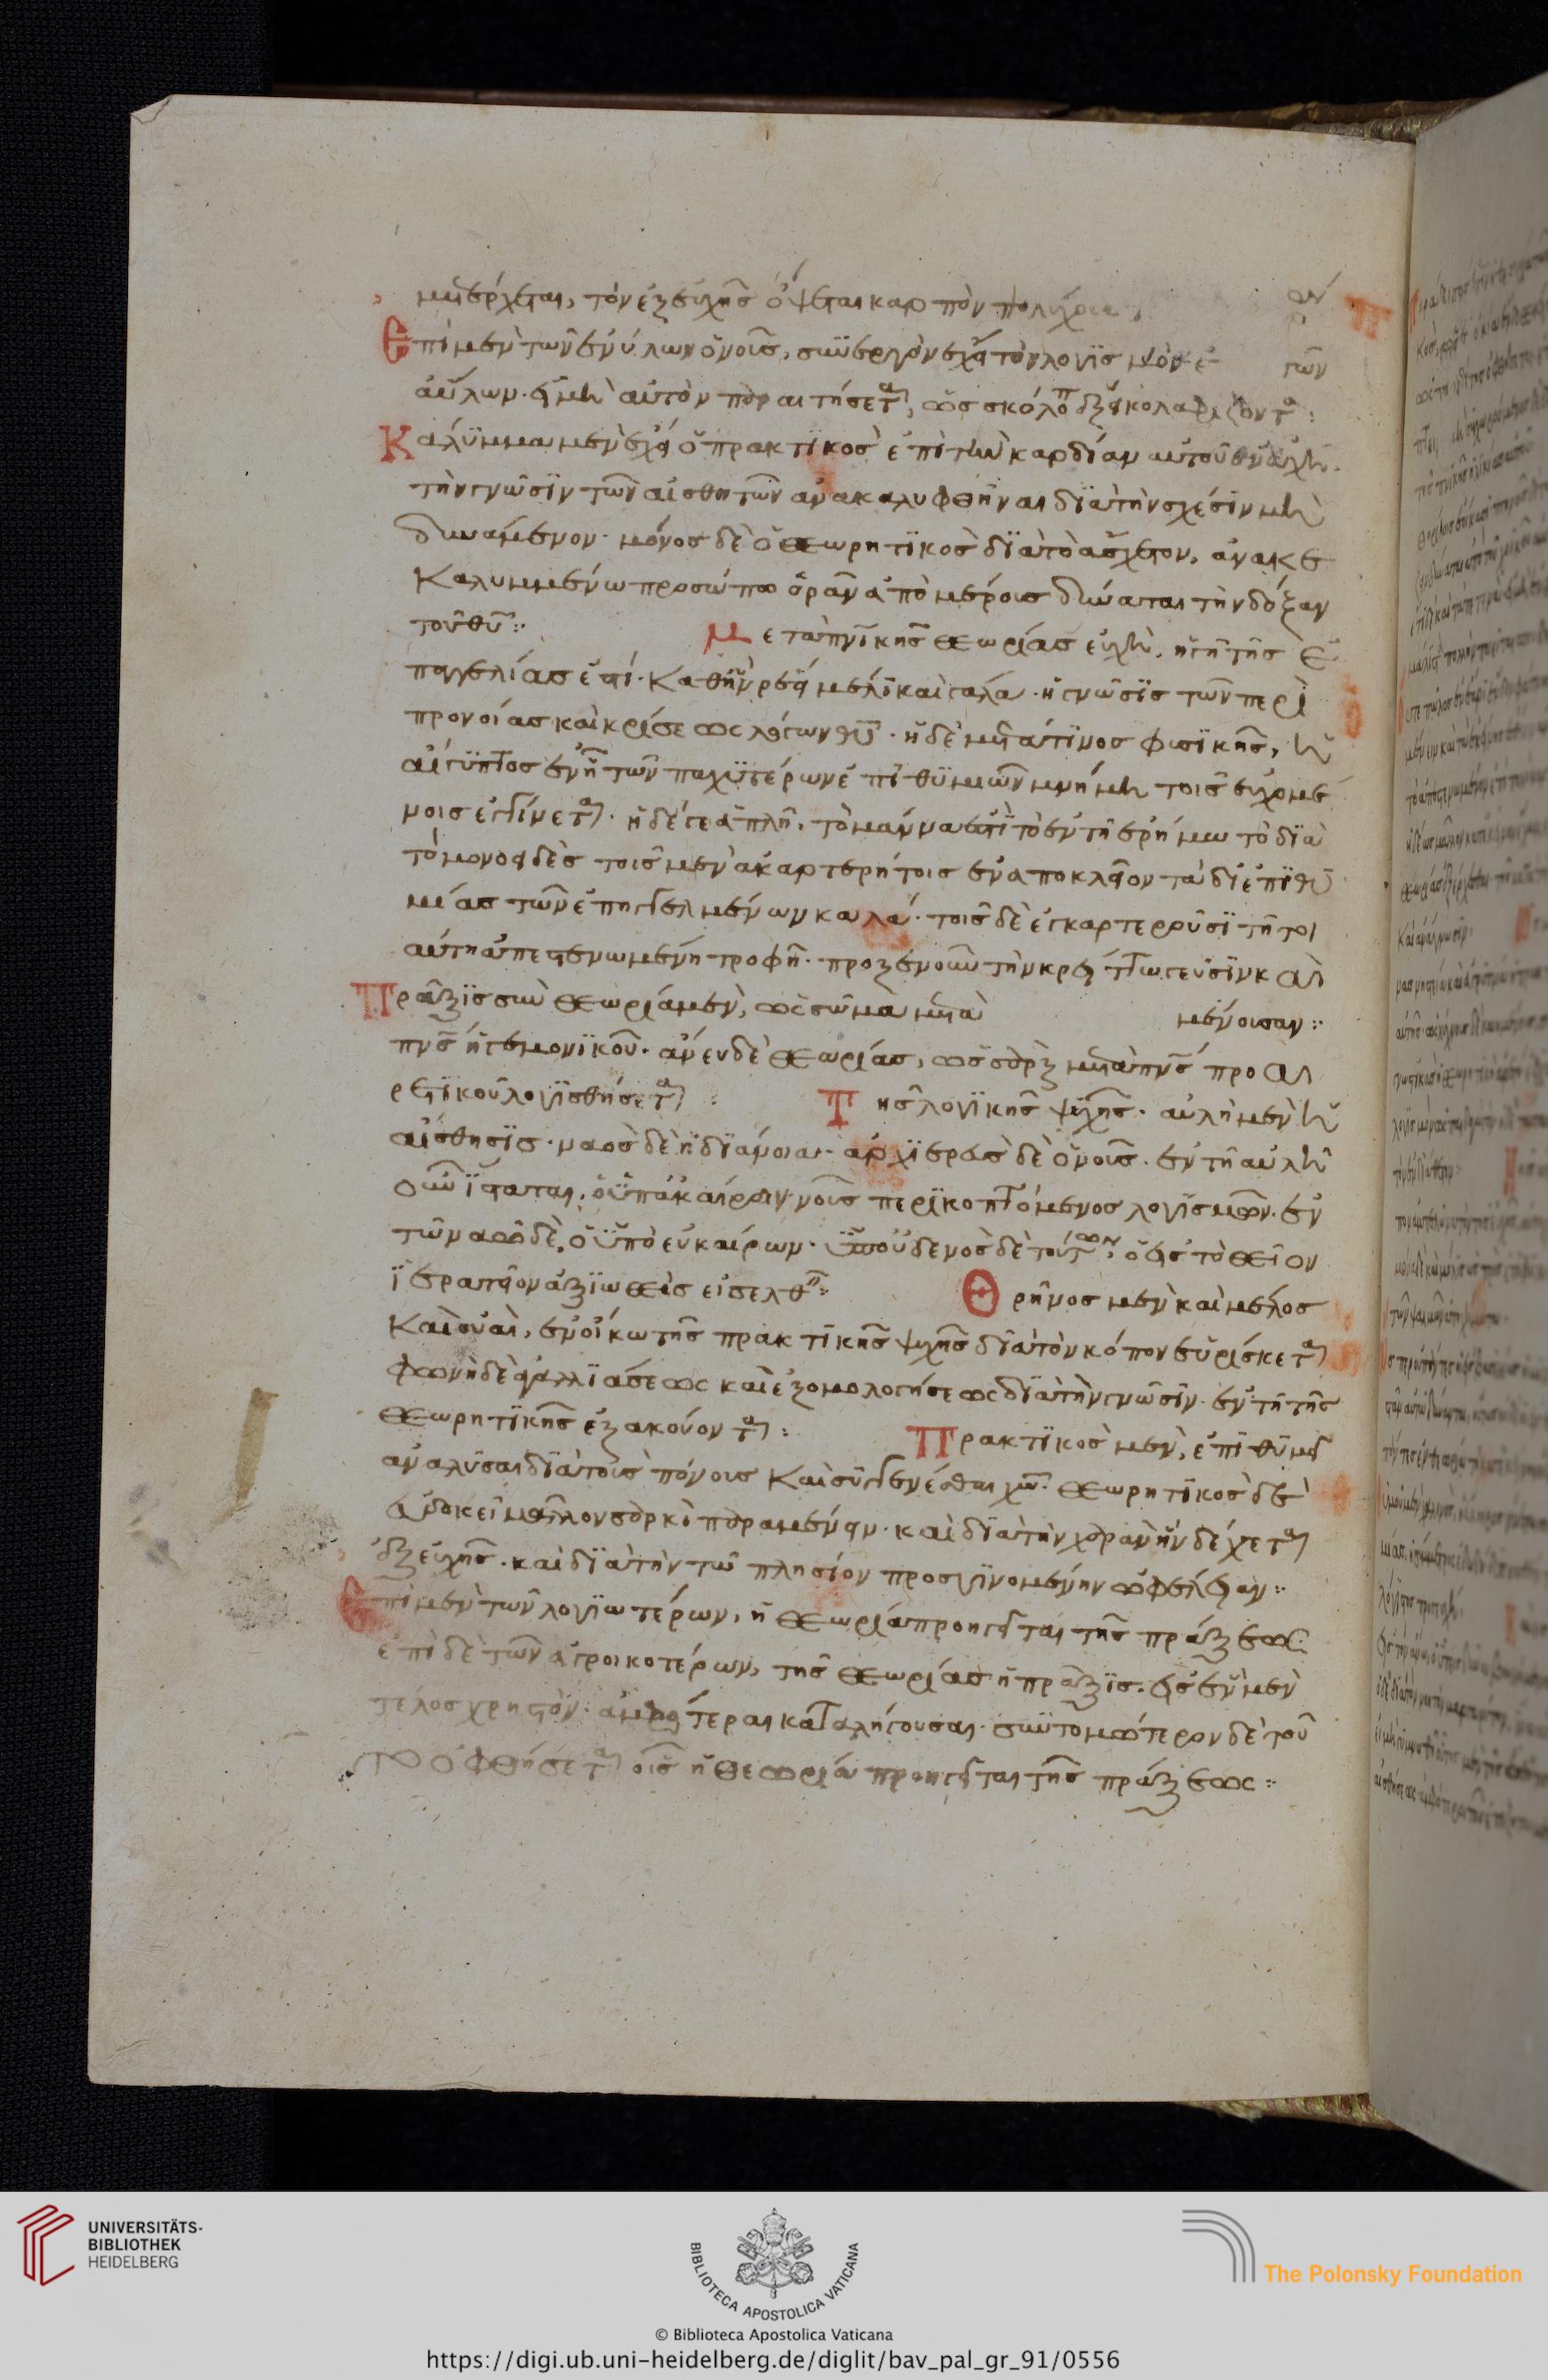 μὴ ἔρχεται, τὸν ἐξ εὐχῆς ὄψεται καρπὸν πολύχουν
Ἐπὶ μὲν τῶν ἐνύλων ὁ νοῦς, συνεργὸν ἔχει τὸν λογισμὸν· ἐ τῶν
ἀΰλων· εἰ μὴ αὐτὸν παραιτήσεται, ὡς σκόλοπα ἕξει κολαφίζοντα:
Κάλυμμα μὲν ἔχει ὁ πρακτικὸς ἐπὶ τὴν καρδίαν αὐτοῦ ἐν εὐχῆ·
τὴν γνῶσιν τῶν αἰσθητῶν ἀνακαλυφθῆναι διὰ τὴν σχέσιν μὴ
δυνάμενον· μόνος δὲ ὁ θεωρητικὸς διὰ τὸ ἄσχετον, ἀνακε
καλυμμένω προσώπω ὁρᾶν ἀπὸ μέρους δύναται τὴν δόξαν
τοῦ θῦ:· Μετὰ πνικῆς θεωρίας εὐχὴ, ἡ γῆ τῆς ἐ
παγγελίας ἐστί· καθ' ἣν ῥέει μέλι καὶ γάλα· ἡ γνῶσις τῶν περὶ
προνοίας καὶ κρίσεως λόγων θῦ· ἡ δὲ μετά τινος φυσικῆς, ἡ
αἴγυπτος ἐν ᾗ τῶν παχυτέρων ἐπιθυμιῶν μνήμη τοῖς εὐχομέ
νοις ἐγγίνεται· ἡ δέ γε ἁπλῆ, τὸ μάννα ἐστὶ τὸ ἐν τῆ ἐρήμω τὸ διὰ
τὸ μονοειδὲς τοῖς μὲν ἀκαρτερήτοις ἐναποκλεῖον τὰ δι' ἐπιθυ
μίας τῶν ἐπηγγελμένων καλά· τοῖς δὲ ἐγκαρτεροῦσι τῆ τοι
αύτη ἀπεστενωμένη τροφῆ· προξενοῦν τὴν κρείττω γεῦσιν καὶ
Πρᾶξις σὺν θεωρία μὲν, ὡς σῶμα μετὰ μένουσαν:·
πνς ἡγεμονικοῦ· ἄνευ δὲ θεωρίας, ὡς σὰρξ μετὰ πνς προαι
ρετικοῦ λογισθήσεται: Τῆς λογικῆς ψυχῆς· αὐλὴ μὲν ἡ
αἴσθησις· ναὸς δὲ ἡ διάνοια· ἀρχιερεὺς δὲ ὁ νοῦς· ἐν τῆ αὐλῆ
οὖν ἵσταται, ὁ ὑπ' ἀκαίρων νοῦς περικοπτόμενος λογισμῶν· ἐν
τῶ ναῶ δὲ, ὁ ὑπὸ εὐκαίρων· ὑπ' οὐδενὸς δὲ τούτων, ὁ εἰς τὸ θεῖον
ἱερατεῖον ἀξιωθεὶς εἰσελθεῖν:· Θρῆνος μὲν καὶ μέλος
καὶ οὐαὶ, ἐν οἴκω τῆς πρακτικῆς ψυχῆς διὰ τὸν κόπον εὑρίσκεται
φωνὴ δὲ ἀγαλλιάσεως καὶ ἐξομολογήσεως διὰ τὴν γνῶσιν· ἐν τῆ τῆς
θεωρητικῆς ἐξακούονται: Πρακτικὸς μὲν, ἐπιθυμεῖ
ἀναλῦσαι διὰ τοὺς πόνους καὶ συγγενέσθαι χῶ· θεωρητικὸς δὲ
εὐδοκεῖ μᾶλλον σαρκὶ παραμένειν· καὶ διὰ τὴν χαρὰν ἣν δέχεται
ἐξ εὐχῆς· καὶ διὰ τὴν τῶ πλησίον προσγινομένην ὠφέλειαν:·
Ἐπὶ μὲν τῶν λογιωτέρων, ἡ θεωρία προηγεῖται τῆς πράξεως·
ἐπὶ δὲ τῶν ἀγροικοτέρων, τῆς θεωρίας ἡ πρᾶξις· εἰς ἓν μὲν
τέλος χρηστὸν· ἀμφότεραι καταλήγουσαι· συντομώτερον δὲ τοῦ
το ὀφθήσεται οἷς ἡ θεωρία προηγεῖται τῆς πράξεως:·
UNIVERSITÄTS-
BIBLIOTHEK
HEIDELBERG
BIBLIOTECA APOSTOLICA VATICANA
© Biblioteca Apostolica Vaticana
The Polonsky Foundation
https://digi.ub.uni-heidelberg.de/diglit/bav_pal_gr_91/0556